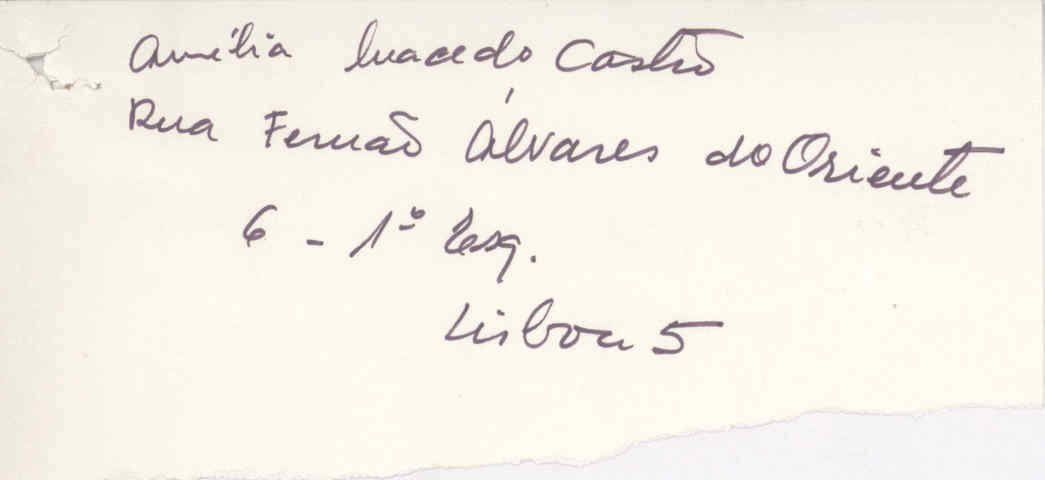 Amélia Macedo Castro
Rua Fernão Álvares do Oriente
6 - 1º Esq.
Lisboa 5